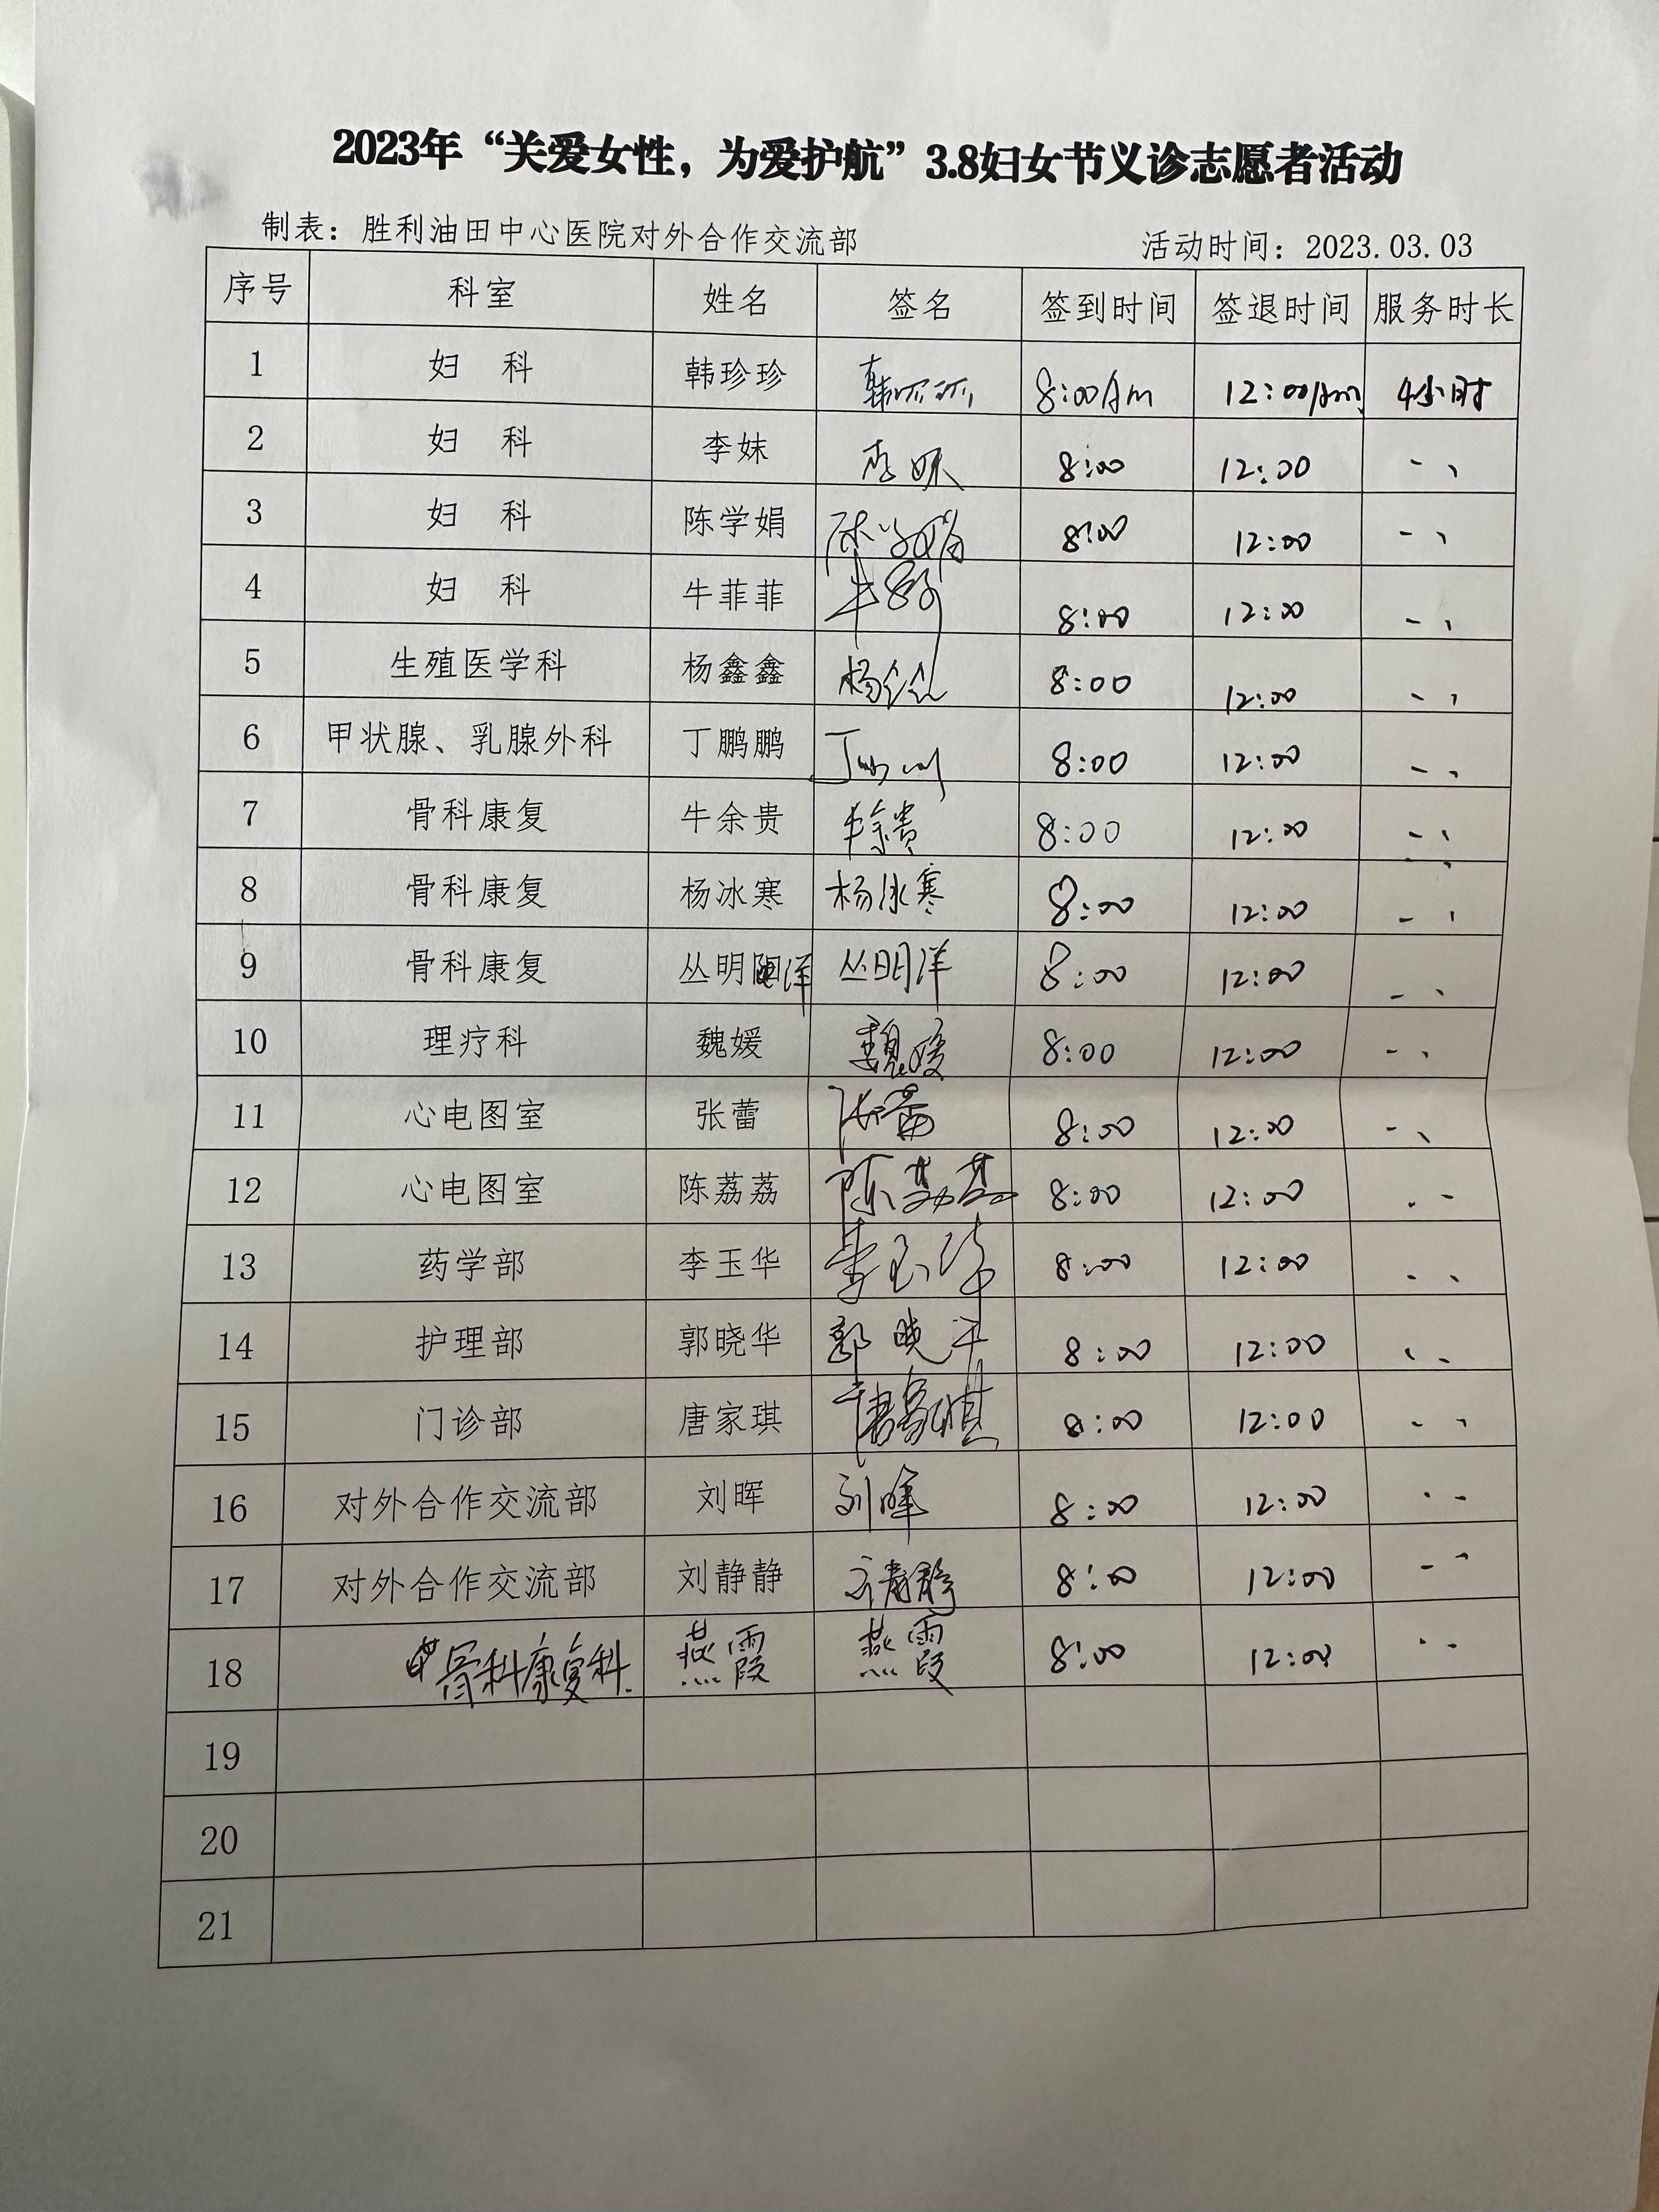 2023年“关爱女性，为爱护航”3.8妇女节义诊志愿者活动
制表：胜利油田中心医院对外合作交流部 活动时间：2023.03.03
序号 科室 姓名 签名 签到时间 签退时间 服务时长
1 妇 科 韩珍珍 韩珍珍 8:00Am 12:00Am 4小时
2 妇 科 李妹 李妹 8:00 12:00 - 、
3 妇 科 陈学娟 陈学娟 8:00 12:00 - 、
4 妇 科 牛菲菲 8:00 12:00 - 、
5 生殖医学科 杨鑫鑫 杨鑫鑫 8:00 12:00 - 、
6 甲状腺、乳腺外科 丁鹏鹏 8:00 12:00 - 、
7 骨科康复 牛余贵 牛余贵 8:00 12:00 - 、
8 骨科康复 杨冰寒 杨冰寒 8:00 12:00 - 、
9 骨科康复 丛明洋 丛明洋 8:00 12:00 - 、
10 理疗科 魏媛 魏媛 8:00 12:00 - 、
11 心电图室 张蕾 张蕾 8:00 12:00 - 、
12 心电图室 陈荔荔 陈荔荔 8:00 12:00 、 -
13 药学部 李玉华 李玉华 8:00 12:00 、 、
14 护理部 郭晓华 郭晓华 8:00 12:00 、 、
15 门诊部 唐家琪 唐家琪 8:00 12:00 - 、
16 对外合作交流部 刘晖 刘晖 8:00 12:00 、 -
17 对外合作交流部 刘静静 刘静静 8:00 12:00 - -
18 骨科康复科. 燕霞 燕霞 8:00 12:00 、 -
19
20
21